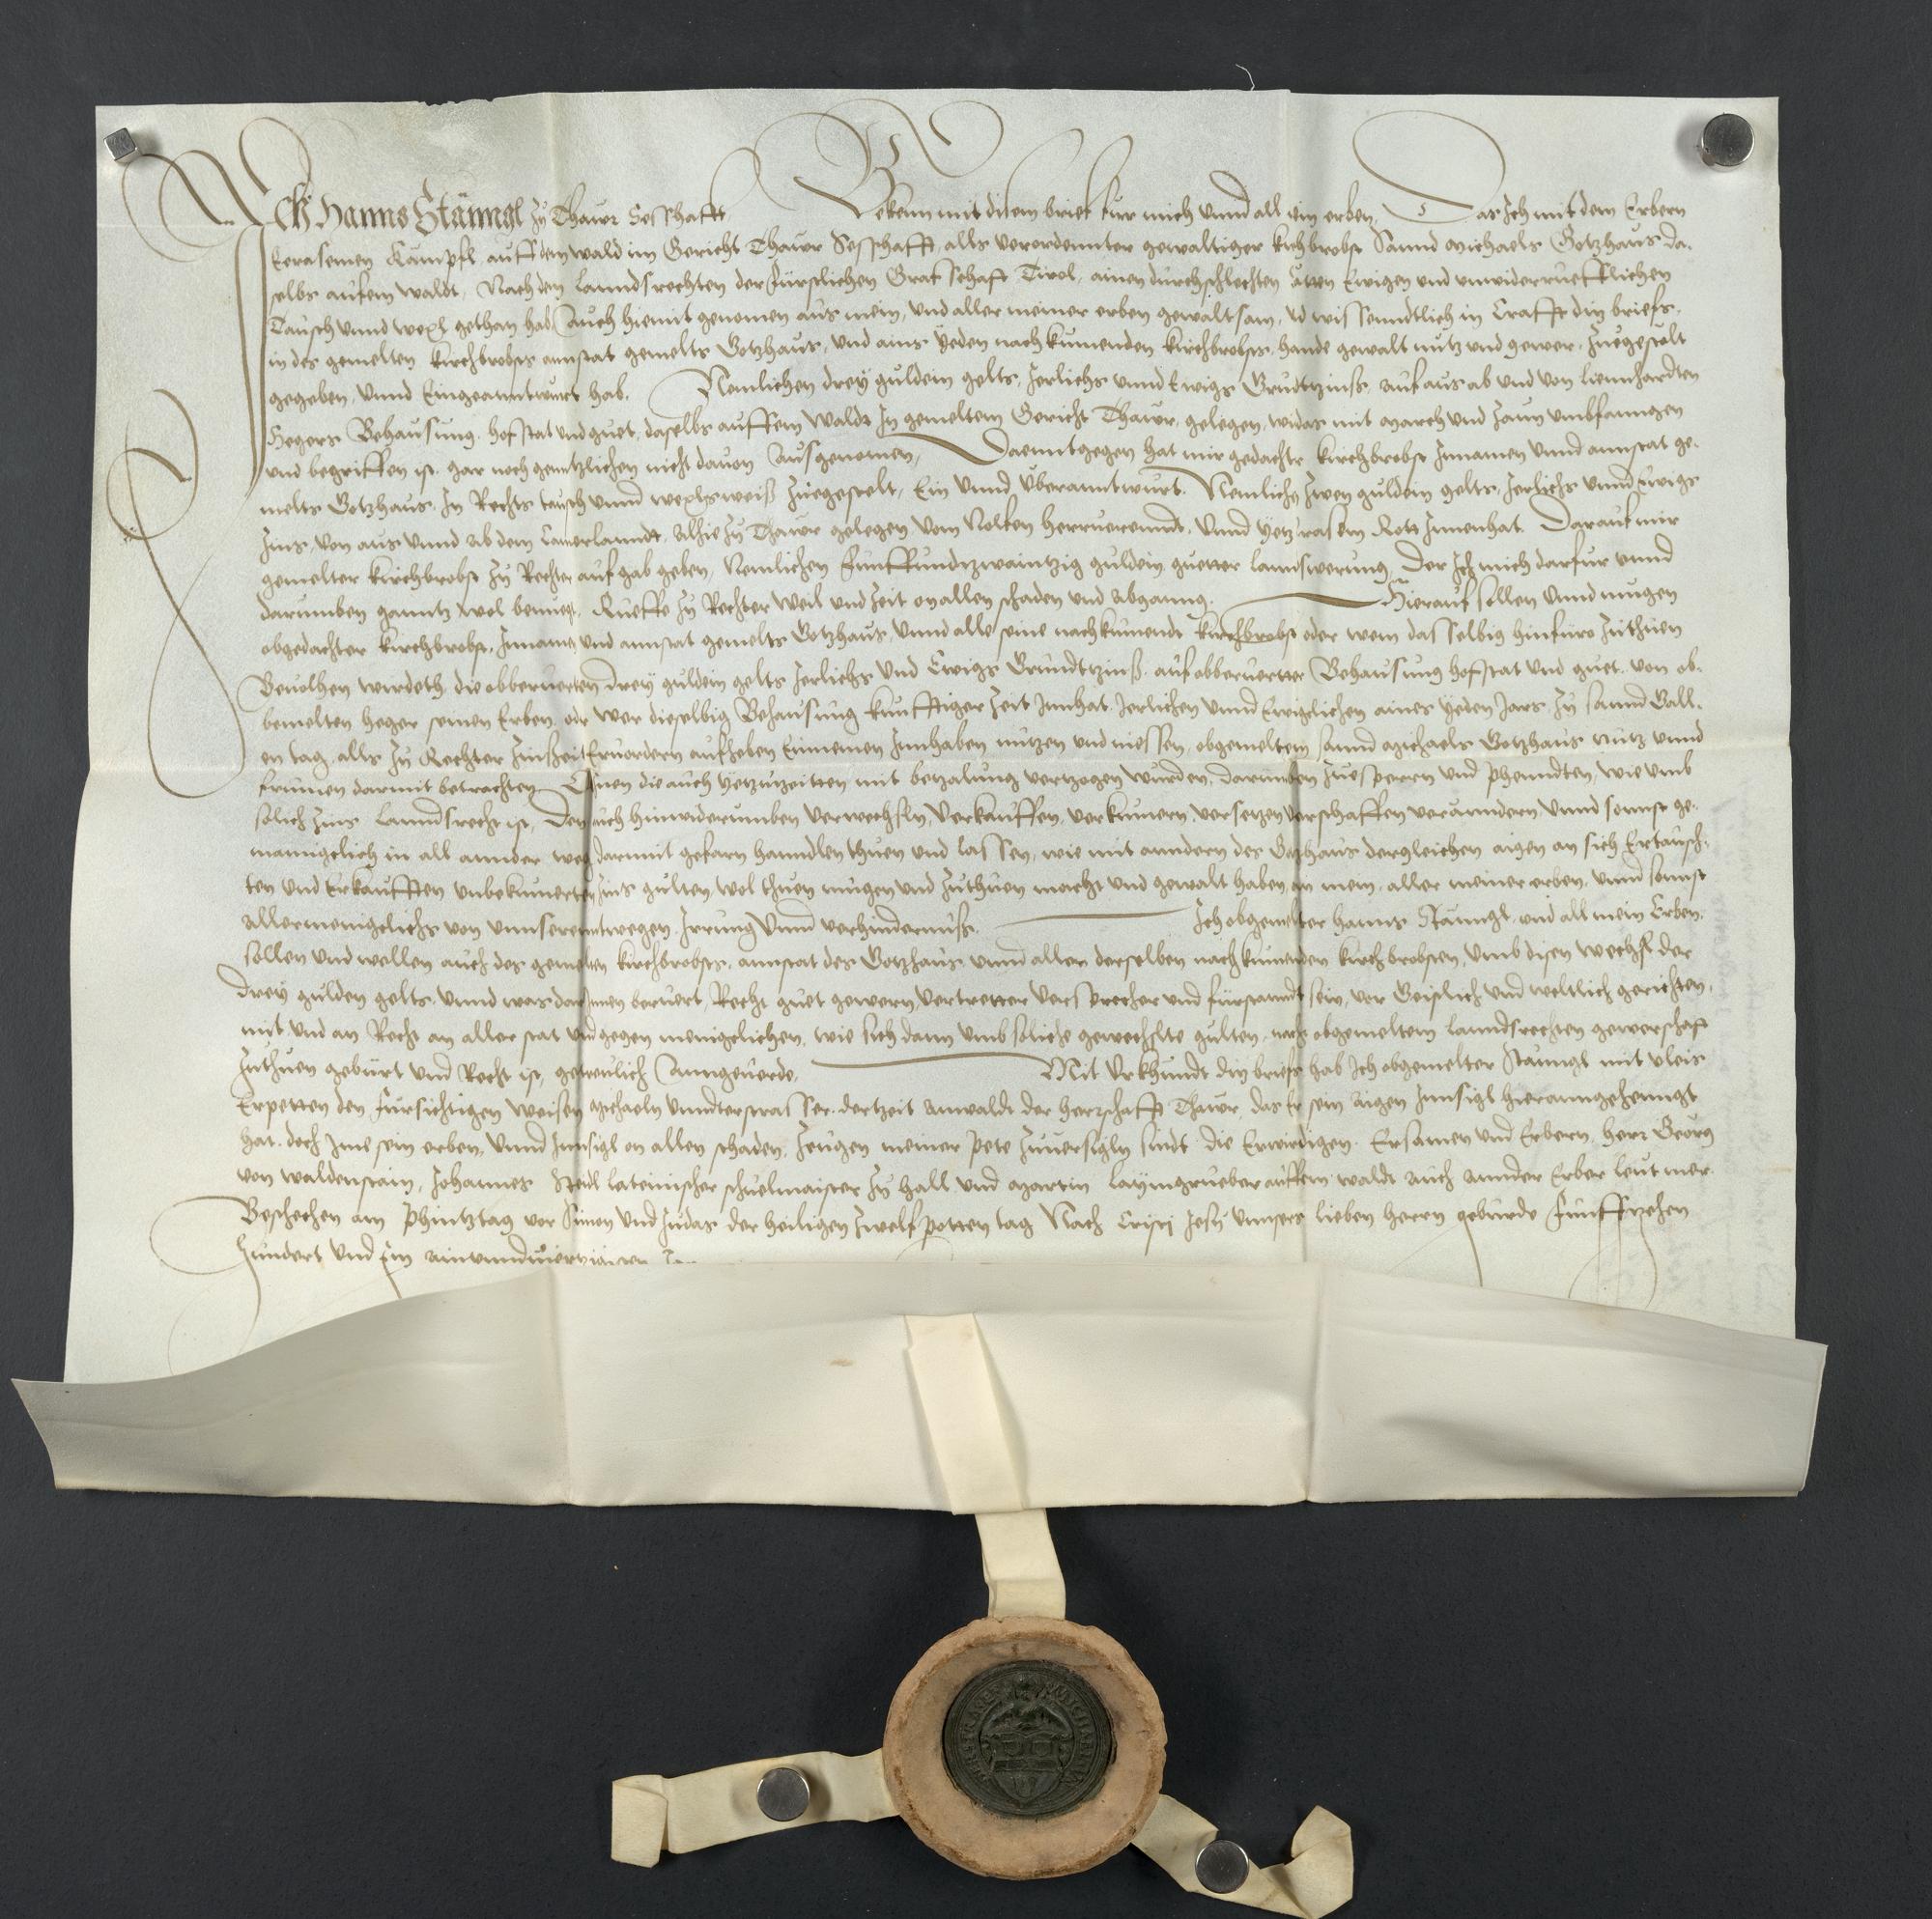 Ich Hanns Stänngl zu Thawr Sesshafft, Bekenn mit disem brief fur mich unnd all mein erben, Das Ich mit dem Erbern
Erasemen Kämpfl auff dem wald im Gericht Thawr Sesshafft, alls verordennter gewaltiger kirchbrobst Sannd Michaels Gotzhaus da-
selbs aufem waldt, Nach den lanndsrechten der fürstlichen Grafschaft Tirol, ainen durchschlechten Ewigen und unwiderruefflichen
Tausch unnd wexl gethan hab, Auch hiemit genomen aus mein, und aller meiner erben gewaltsam, und wissenndtlich in Crafft diß briefs,
in des gemelten kirchbrobsts annstat gemelts Gotzhaus, und ains yeden nachkumenden kirchbrobsts, hande gewalt nutz und gewer, zuegestelt
gegeben, unnd Eingeanntwurt hab. Nemlichen drey guldein gelts, Jerlichs unnd Ewigs Grundtzinß, auf aus ab und von liennhardten
Hegers Behausung, hofstat und guet, daselbs auffem Waldt In gemeltem Gericht Thawr, gelegen, wie das mit march und zaun umbfanngen
und begriffen ist, gar noch genntzlichen nicht davon ausgenomen, Daenntgegen hat mir gedachter kirchbrobst Innamen unnd annstat ge-
melts Gotzhaus, In Rechts tausch unnd wexlsweiß zuegestelt, Ein unnd überanntwurt. Nemlichen zwen guldein gelts, Jerlichs unnd Ewigs
zins, von aus unnd ab dem lanndt, alhie zu Thawr gelegen, vom herruerenndt, Unnd yetz Innenhat. Darauf mir
gemelter kirchbrobst zu Rechter aufgab geben, Nemlichen funffundzwaintzig guldein guetter lanndswerung, Der Ich mich darfur unnd
darumben ganntz wol benuegt, zu Rechter weil und zeit on allen schaden und abganng. Hierauf sollen unnd mugen
obgedachter kirchbrobst, Innamen und annstat gemelts Gotzhaus, Unnd alle seine nachkumendt kirchbrobst oder wem dasselbig hinfüro zuthuen
Bevolhen wirdeth, die obberuerten drey guldein gelts Jerlichs Und Ewigs Grundtzinß, auf obberuertter Behausung hofstat und guet, von ob-
bemelten heger seinen Erben, oder wer dieselbig Behausung kunfftiger zeit Innhat, Jerlichen unnd Ewigclichen aines yeden Jars, zu sannd Gall-
en tag, alls zu Rechter zinßzeit Ervordern aufheben Einnemen Innhaben nutzen und niessen, obgemeltem sannd Michaels Gotzhaus nutz unnd
frumen darmit betrachten die auch yetzuzeitten mit betzalung vertzogen wurden, darumben zuesperrn und phenndten, wie umb
solich zins lanndsrecht ist, Den auch hinwiderumben verwechsln, verkauffen, verkumern, versetzen verschaffen verenndern, Unnd sonnst ge-
mainigclich in all annder weg darmit gefarn hanndlen thuen und lassen, wie mit anndern des Gotzhaus dergleichen aigen an sich Ertausch-
ten und Erkaufften unbekumerten zins gulten, wol thuen mugen und zuthuen macht und gewalt haben, an mein, aller meiner erben, unnd sonnst
allermenigclichs von unnserenntwegen, Irrung unnd verhindernuß. Ich obgemelter hanns Stänngl, und all mein Erben,
sollen und wellen auch des gemelten kirchbrobsts, annstat des Gotzhaus, unnd aller derselben nachkumenden kirchbrobsten, Umb disen wechsl der
drey gulden gelts, Unnd was darInnen beruert, Recht guet gewern, vertretter versprecher und fürstanndt sein, vor Geistlich und weltlich gerichten,
mit, und an Recht an aller stat und gegen menigclichen, wie sich dann umb soliche gewechslte gulten, nach obgemeltem lanndsrechten gewerschaft
zuthuen gebürt und Recht ist, getreulich Anngeverde, Mit Urkhundt diß briefs, hab Ich obgemelter Stänngl mit vleis
Erpetten den fürsichtigen weisen Michaeln Unnderstrasser, dertzeit anwaldt der herrschafft Thawr, das Er sein aigen Innsigl hieranngehenngt
hat, doch Ime sein erben, Unnd Innsigl on allen schaden, zeugen meiner pete zuversigln sindt die Erwirdigen, Ersamen und Erbern, herr Georg
von waldenstain, Johannes lateinischer schuelmaister zu hall und Martin laymgrueber auffem waldt auch annder Erber leut mer.
Beschechen am Phintztag vor Simon Und Judas der heiligen zwelfpotten tag Nach Cristj Jesu unnsers lieben herrn geburde funffzehen
hundert Und Im ainundviertzigisten